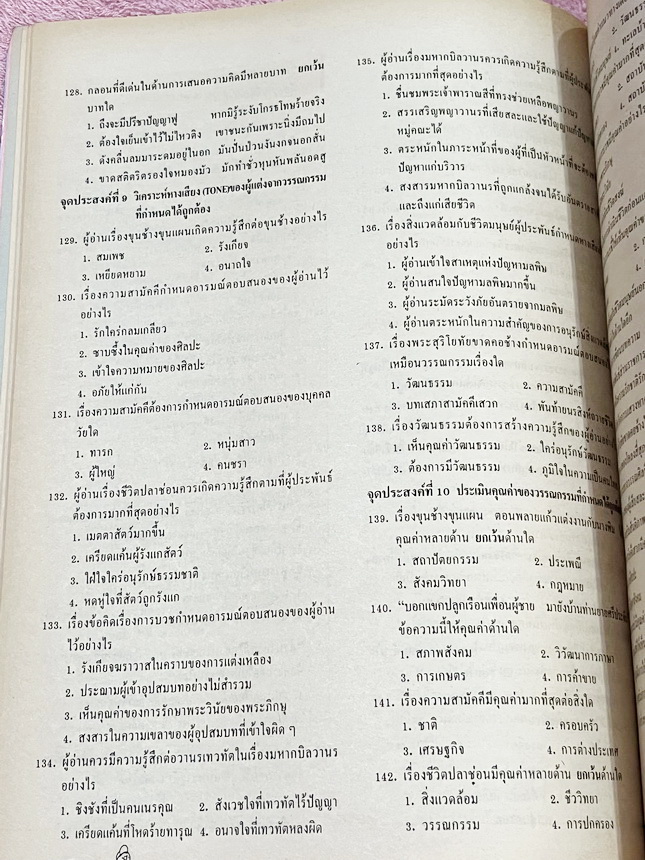 128. กลอนที่ดีเด่นในด้านการเสนอความคิดมีหลายบาท ยกเว้น
บาทใด
1. ถึงจะมีปรีชาปัญญาฟู หากมิรู้ระงับโกรธโทษร้ายจริง
2. ต้องใจเย็นเข้าไว้ไม่ไหวติง เขาชนะกันเพราะนิ่งมีถมไป
3. ดังคลื่นลมมาระดมอยู่ในอก มันปั่นป่วนงันงกจนอกสั่น
4. ขาดสติตริตรองใจหมองมัว มักทำชั่วหุนหันพลันอดสู
จุดประสงค์ที่ 9 วิเคราะห์ทางเสียง (TONE)ของผู้แต่งจากวรรณกรรม
ที่กำหนดได้ถูกต้อง
129. ผู้อ่านเรื่องขุนช้างขุนแผนเกิดความรู้สึกต่อขุนช้างอย่างไร
1. สมเพช 2. รังเกียจ
3. เหยียดหยาม 4. อนาถใจ
130. เรื่องความสามัคคีกำหนดอารมณ์ตอบสนองของผู้อ่านไว้
อย่างไร
1. รักใคร่กลมเกลียว
2. ซาบซึ้งในคุณค่าของศิลปะ
3. เข้าใจความหมายของศิลปะ
4. อภัยให้แก่กัน
131. เรื่องความสามัคคีต้องการกำหนดอารมณ์ตอบสนองของบุคคล
วัยใด
1. ทารก 2. หนุ่มสาว
3. ผู้ใหญ่ 4. คนชรา
132. ผู้อ่านเรื่องชีวิตปลาช่อนควรเกิดความรู้สึกตามที่ผู้ประพันธ์
ต้องการมากที่สุดอย่างไร
1. เมตตาสัตว์มากขึ้น
2. เครียดแค้นผู้รังแกสัตว์
3. ใฝ่ใจใคร่อนุรักษ์ธรรมชาติ
4. หดหู่ใจที่สัตว์ถูกรังแก
133. เรื่องข้อคิดเรื่องการบวชกำหนดอารมณ์ตอบสนองของผู้อ่าน
ไว้อย่างไร
1. รังเกียจฆราวาสในคราบของการแต่งเหลือง
2. ประณามผู้เข้าอุปสมบทอย่างไม่สำรวม
3. เห็นคุณค่าของการรักษาพระวินัยของพระภิกษุ
4. สงสารในความเขลาของผู้อุปสมบทที่เข้าใจผิด ๆ
134. ผู้อ่านควรมีความรู้สึกต่อวานรเทวทัตในเรื่องมหากบิลวานร
อย่างไร
1. ชิงชังที่เป็นคนเนรคุณ 2. สังเวชใจที่เทวทัตไร้ปัญญา
3. เครียดแค้นที่โหดร้ายทารุณ 4. อนาจใจที่เทวทัตหลงผิด
135. ผู้อ่านเรื่องมหากบิลวานรควรเกิดความรู้สึกตามที่ผู้ประพันธ์
ต้องการมากที่สุดอย่างไร
1. ชื่นชมพระเจ้าพาราณสีที่ทรงช่วยเหลือพญาวานร
2. สรรเสริญพญาวานรที่เสียสละและใช้ปัญญาแก้ปัญหา
หมู่คณะได้
3. ตระหนักในภาระหน้าที่ของผู้ที่เป็นหัวหน้าที่จะต้อง
ปัญหาแก่บริวาร
4. สงสารมหากบิลวานรที่ถูกแกล้งจนได้รับอันตราย
และถึงแก่เสียชีวิต
136. เรื่องสิ่งแวดล้อมกับชีวิตมนุษย์ผู้ประพันธ์กำหนดทางเสียง
อย่างไร
1. ผู้อ่านเข้าใจสาเหตุแห่งปัญหามลพิษ
2. ผู้อ่านสนใจปัญหามลพิษมากขึ้น
3. ผู้อ่านระมัดระวังภัยอันตรายจากมลพิษ
4. ผู้อ่านตระหนักในความสำคัญของการอนุรักษ์สิ่งแวดล้อม
137. เรื่องพระสุริโยทัยขาดคอช้างกำหนดอารมณ์ตอบสนอง
เหมือนวรรณกรรมเรื่องใด
1. วัฒนธรรม 2. ความสามัคคี
3. บทเสภาสามัคคีเสวก 4. พันท้ายนรสิงห์ถวายชีวิต
138. เรื่องวัฒนธรรมต้องการสร้างความรู้สึกของผู้อ่านอย่างไร
1. เห็นคุณค่าวัฒนธรรม 2. ใคร่อนุรักษ์วัฒนธรรม
3. ต้องการมีวัฒนธรรม 4. ภูมิใจในความเป็นคนไทย
จุดประสงค์ที่ 10 ประเมินคุณค่าของวรรณกรรมที่กำหนดให้
139. เรื่องขุนช้างขุนแผน ตอนพลายแก้วแต่งงานกับนางพิม
คุณค่าหลายด้าน ยกเว้นด้านใด
1. สถาปัตยกรรม 2. ประเพณี
3. สังคมวิทยา 4. กฎหมาย
140. “บอกแขกปลูกเรือนเพื่อนผู้ชาย มายังบ้านท่านยายศรีประจัน
ข้อความนี้ให้คุณค่าด้านใด
1. สภาพสังคม 2. วิวัฒนาการภาษา
3. การเกษตร 4. การค้าขาย
141. เรื่องความสามัคคีมีคุณค่ามากที่สุดต่อสิ่งใด
1. ชาติ 2. ครอบครัว
3. เศรษฐกิจ 4. การต่างประเทศ
142. เรื่องชีวิตปลาช่อนมีคุณค่าหลายด้าน ยกเว้นด้านใด
1. สิ่งแวดล้อม 2. ชีววิทยา
3. วรรณกรรม 4. การปกครอง